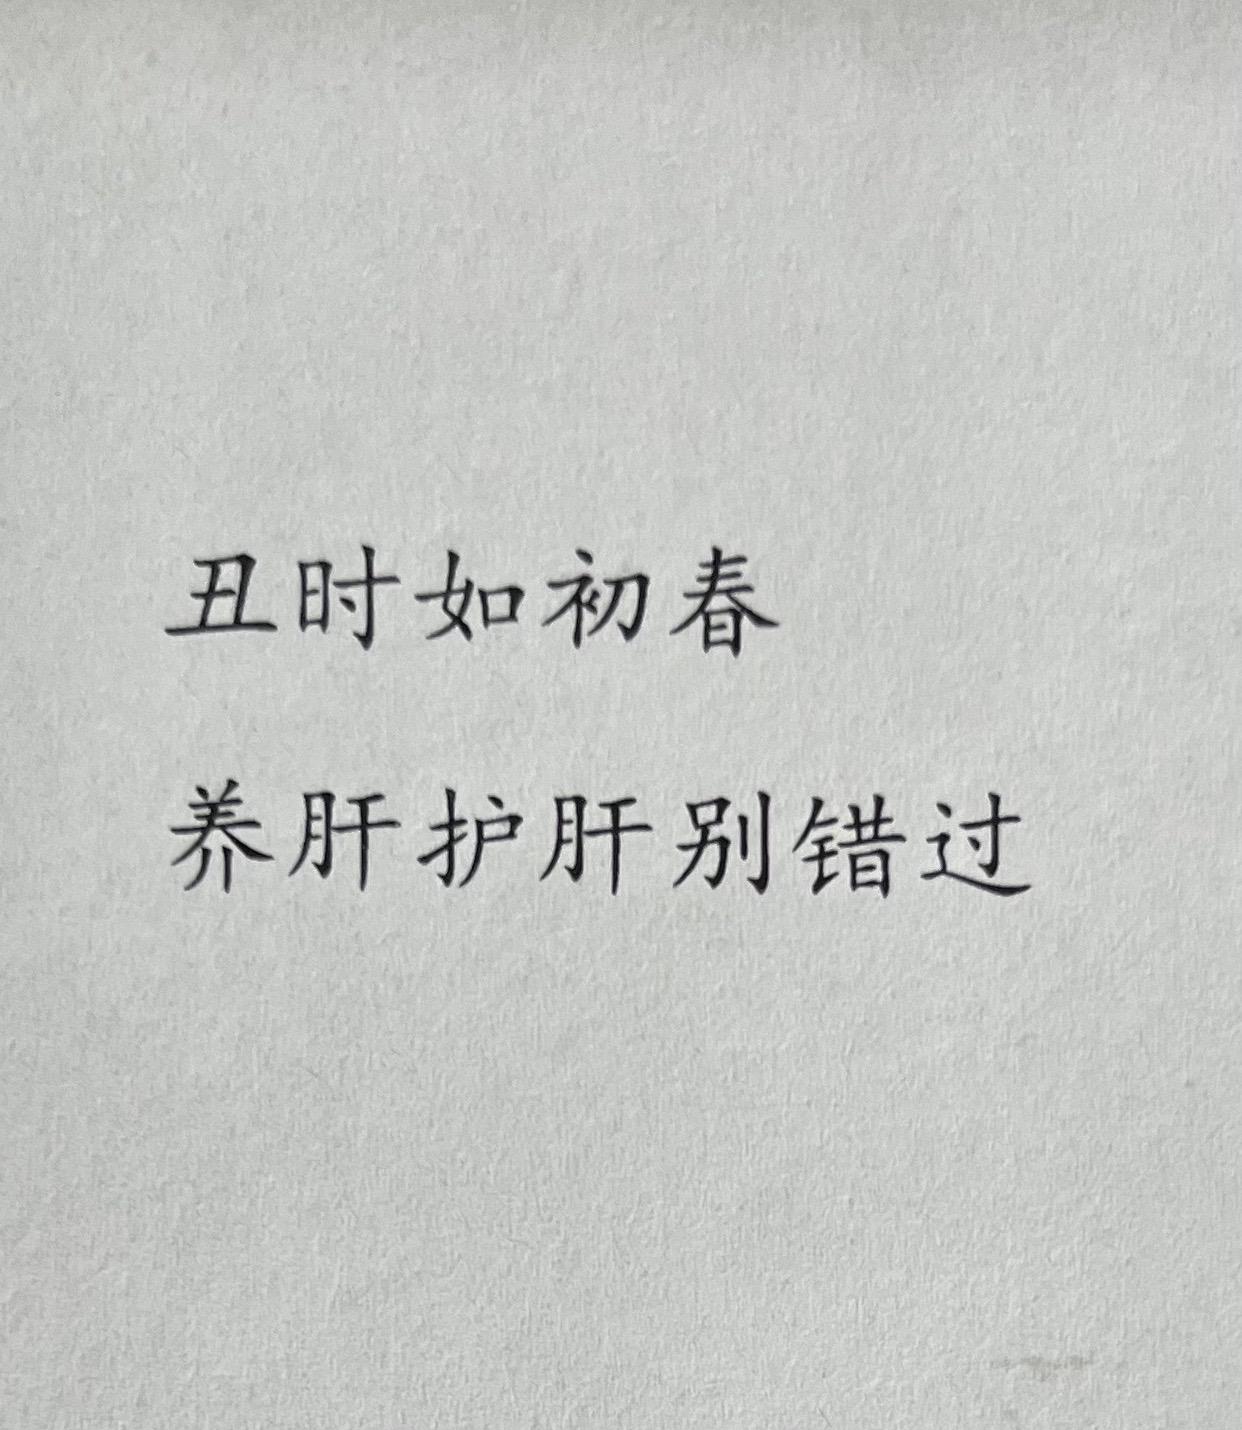 丑时如初春
养肝护肝别错过